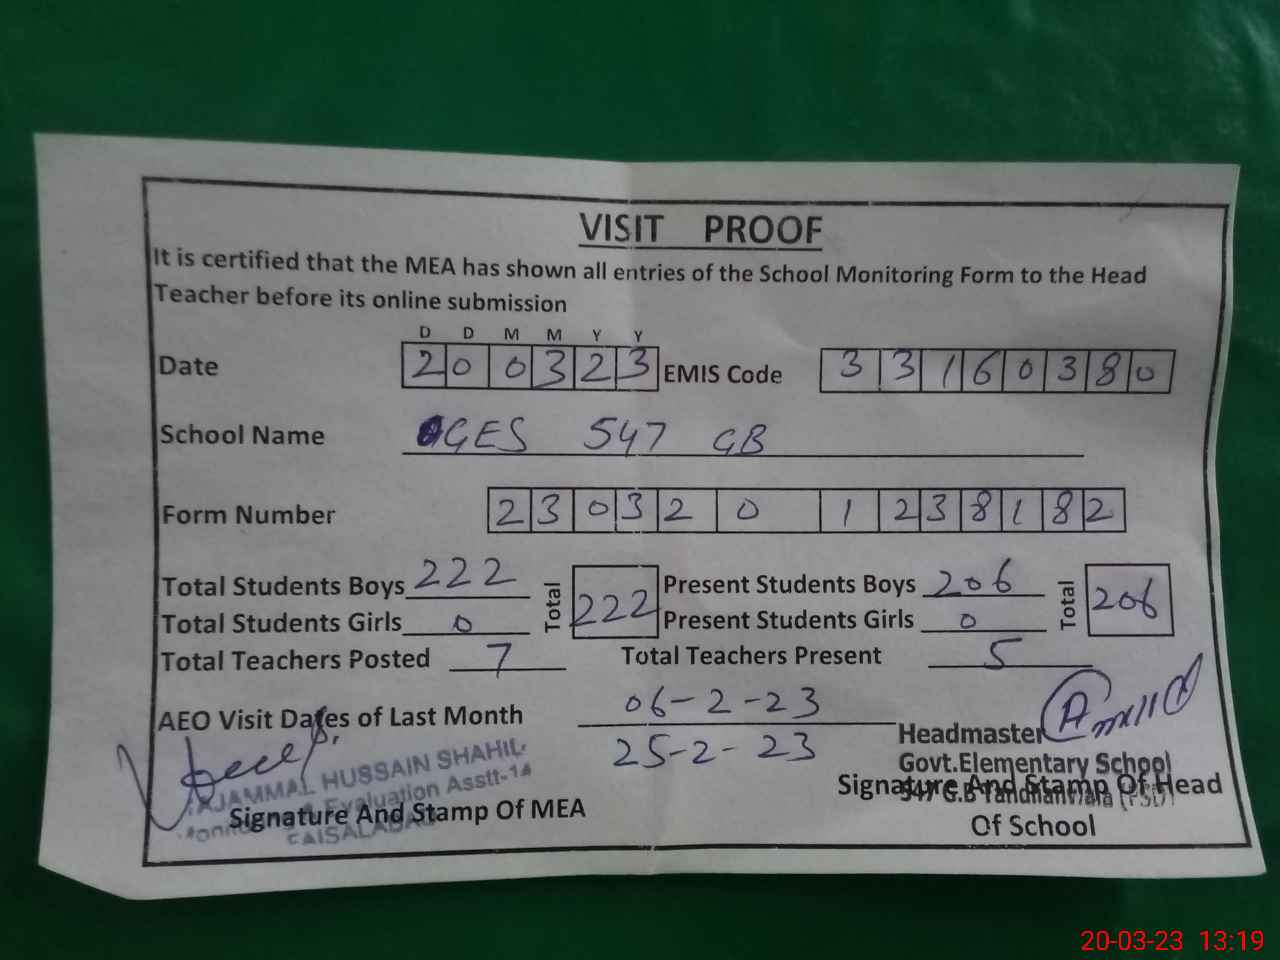 VISIT PROOF
It is certified that the MEA has shown all entries of the School Monitoring Form to the Head
Teacher before its online submission
D D M M Y Y
Date 2 0 0 3 2 3 EMIS Code 3 3 1 6 0 3 8 0
School Name GES 547 GB
Form Number 2 3 0 3 2 0 1 2 3 8 1 8 2
Total Students Boys 222 Total 222 Present Students Boys 206 Total 206
Total Students Girls 0 Present Students Girls 0
Total Teachers Posted 7 Total Teachers Present 5
AEO Visit Dates of Last Month 06-2-23
25-2-23
Headmaster
Govt.Elementary School
547 G.B Tandlianwala (FSD)
HUSSAIN SHAHID
Evaluation Asstt-14
FAISALABAD
Signature And Stamp Of MEA
Signature And Stamp Of Head
Of School
20-03-23 13:19